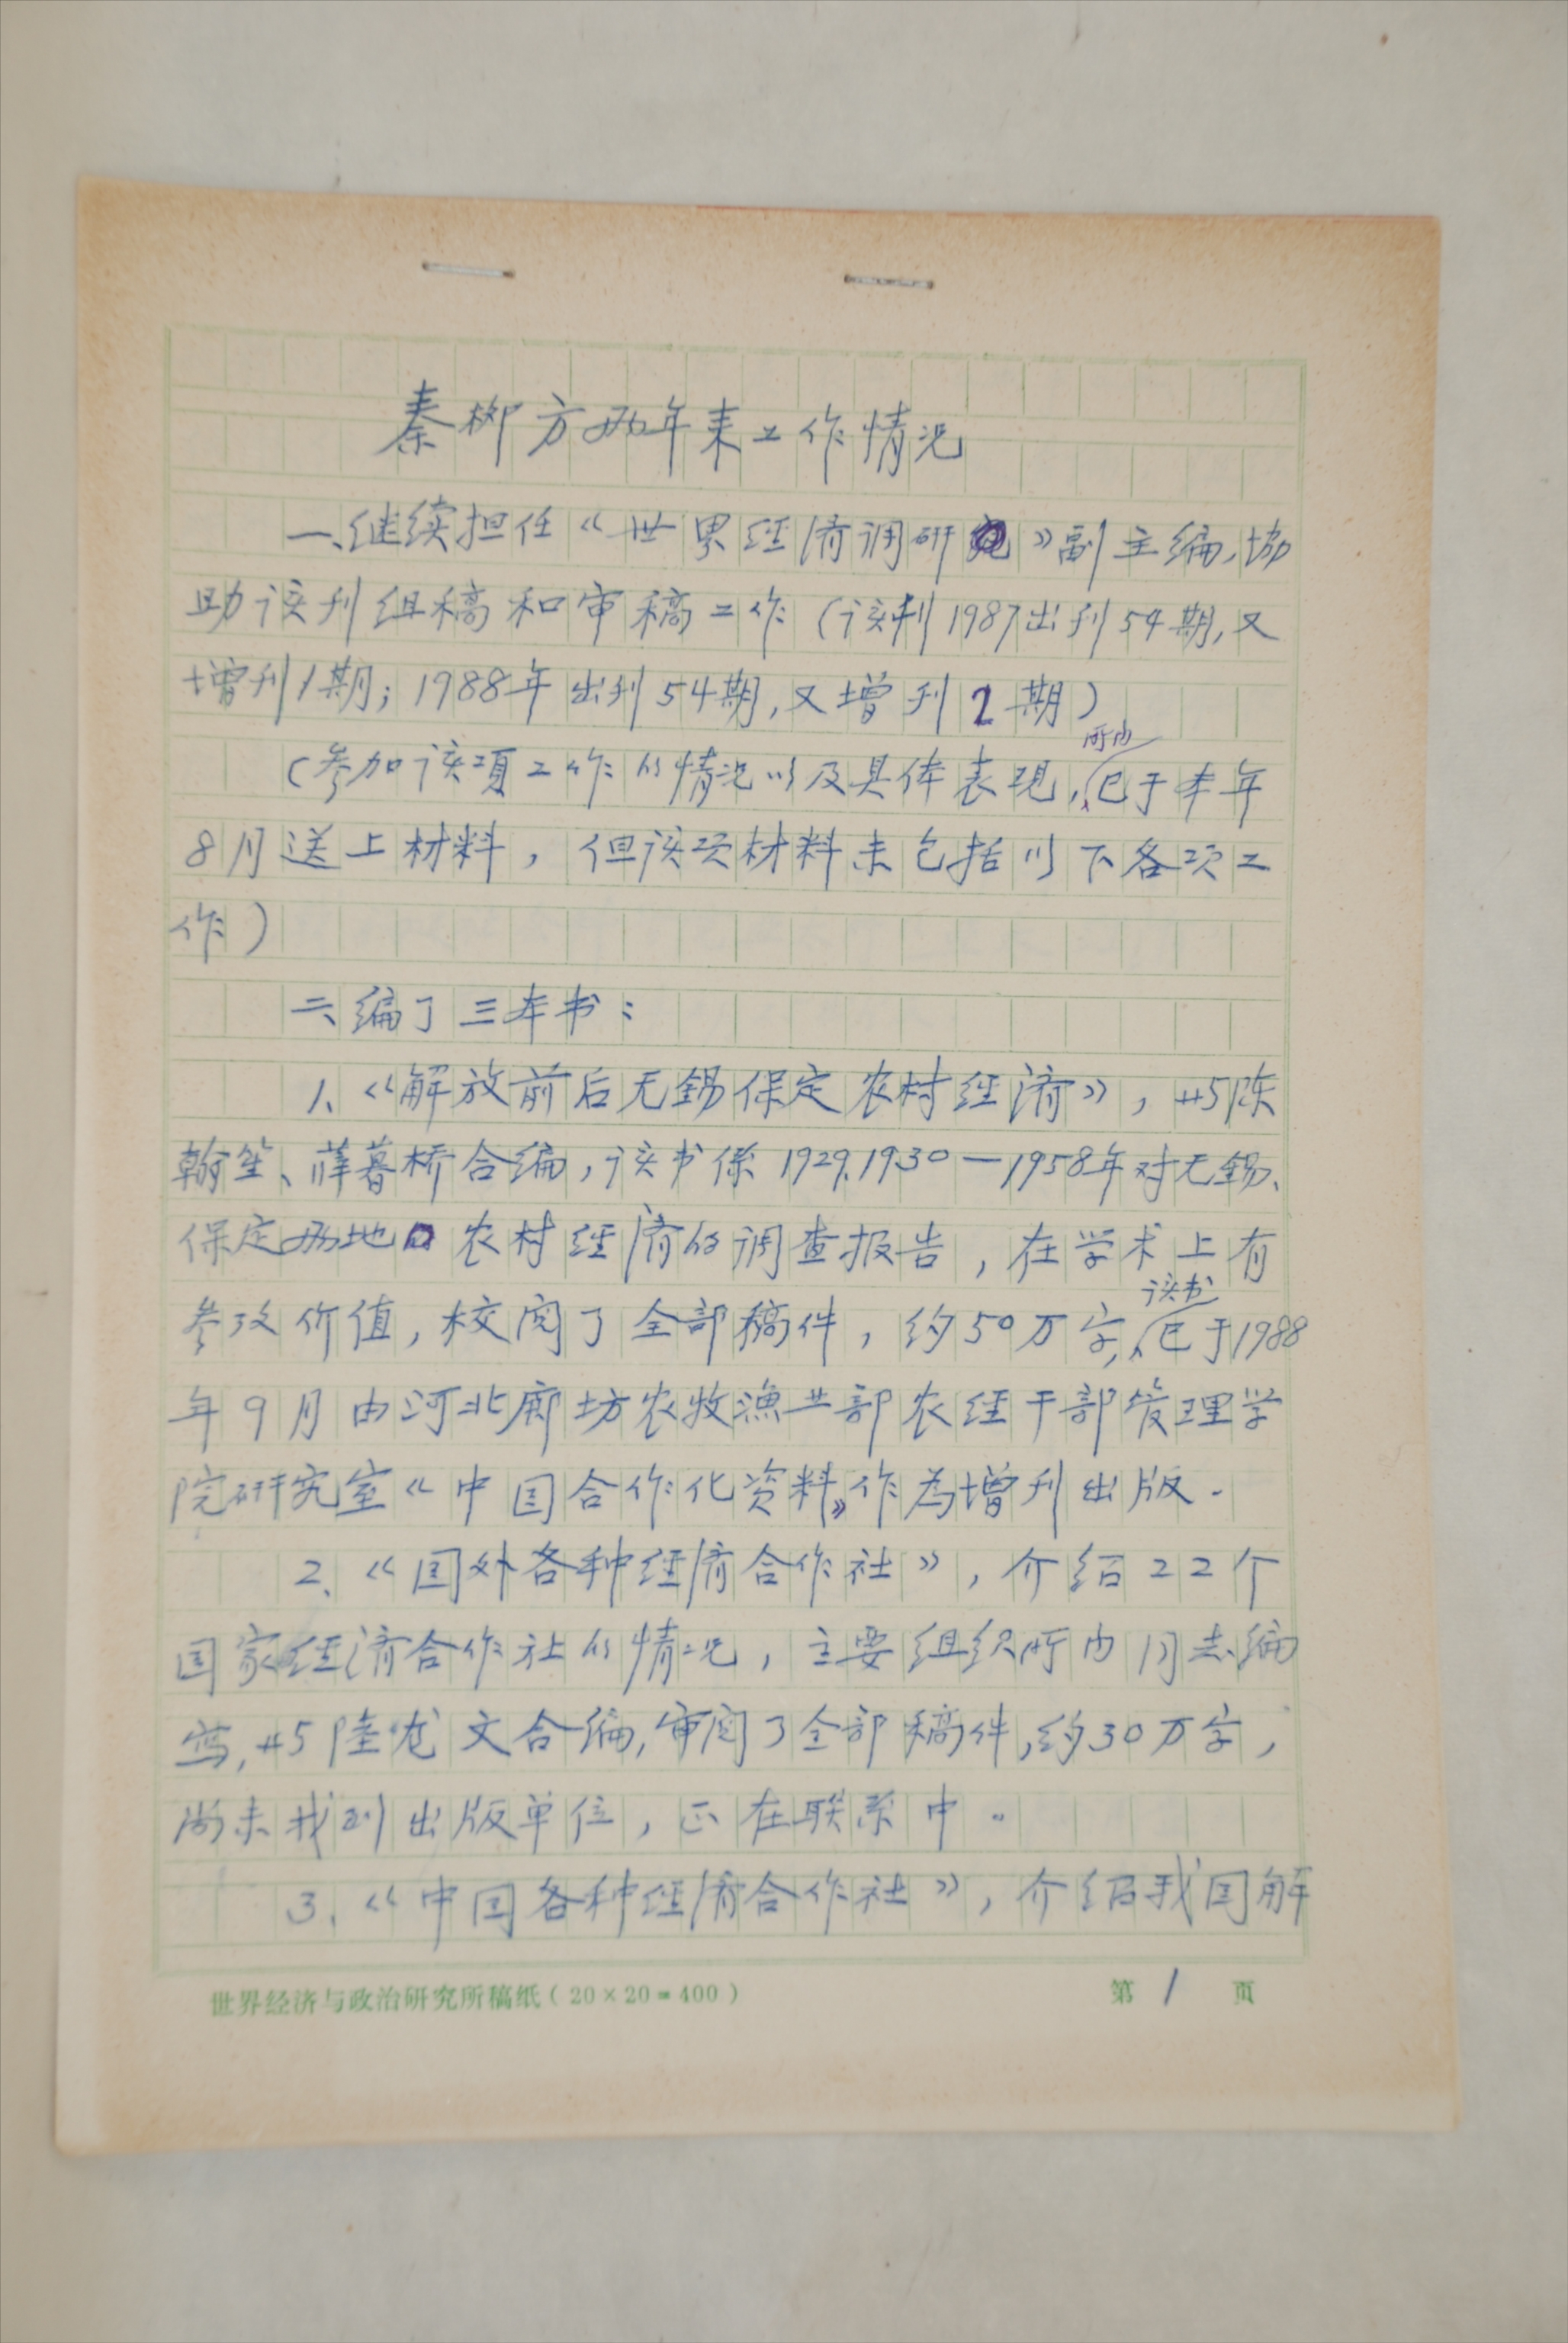 秦柳方两年来工作情况
一、继续担任《世界经济调研》副主编,协
助该刊组稿和审稿工作(该刊1987出刊54期,又
增刊1期;1988年出刊54期,又增刊2期)
(参加该项工作的情况以及具体表现,所内已于本年
8月送上材料,但该项材料未包括以下各项工
作)
二、编了三本书:
1、《解放前后无锡保定农村经济》,与陈
翰笙、薛暮桥合编,该书系1929、1930—1958年对无锡、
保定两地农村经济的调查报告,在学术上有
参考价值,校阅了全部稿件,约50万字,该书已于1988
年9月由河北廊坊农牧渔业部农经干部管理学
院研究室《中国合作化资料》作为增刊出版.
2、《国外各种经济合作社》,介绍22个
国家经济合作社的情况,主要组织所内同志编
写,与陆龙文合编,审阅了全部稿件,约30万字,
尚未找到出版单位,正在联系中。
3、《中国各种经济合作社》,介绍我国解
世界经济与政治研究所稿纸(20×20=400)
第1页